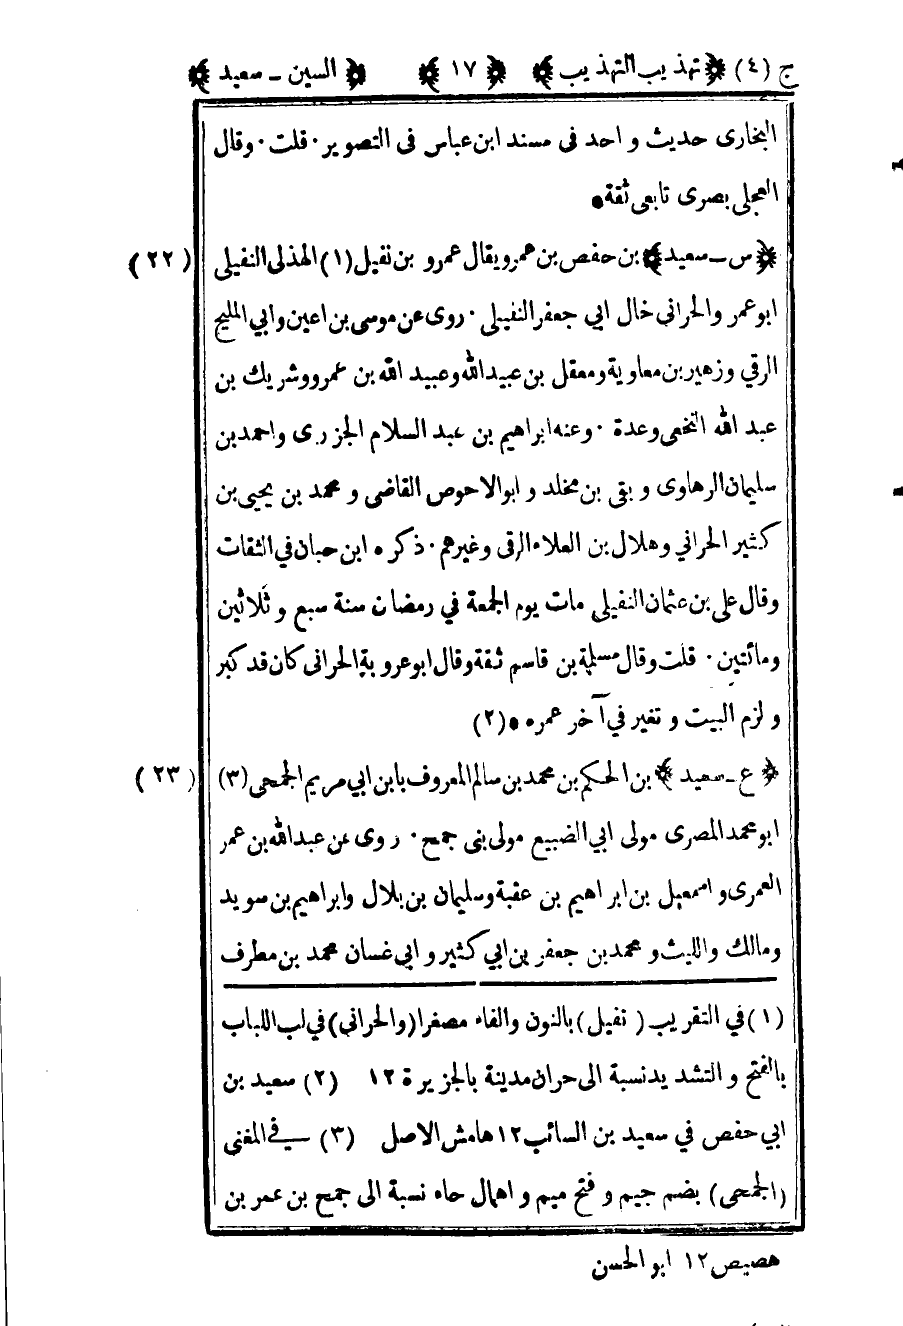 ج (٤) ﴿ تهذيب التهذيب ﴾ ﴿ ١٧ ﴾ ﴿ السين ـ سعيد ﴾
البخارى حديث و احد فى مسند ابن عباس فى التصوير · قلت · وقال
العجلى بصرى تابعى ثقة •
﴿ س ـ سعيد ﴾ بن حفص بن عمرو يقال عمرو بن نفيل (١) الهذلى النفيلى (٢٢)
ابو عمر والحرانى خال ابي جعفر النفيلى · روى عن موسى بن اعين وابي المليح
الرقي وزهير بن معاوية ومعقل بن عبيد الله وعبيد الله بن عمرو وشريك بن
عبد الله النخعى وعدة · وعنه ابراهيم بن عبد السلام الجزرى واحمد بن
سليمان الرهاوى و بقى بن مخلد و ابوالاحوص القاضى و محمد بن يحيى بن
كثير الحراني وهلال بن العلاء الرقى وغيرهم · ذكره ابن حبان في الثقات
وقال على بن عثمان النفيلى مات يوم الجمعة في رمضان سنة سبع و ثلاثين
ومائتين · قلت وقال مسلمة بن قاسم ثقة وقال ابو عروبة الحرانى كان قد كبر
و لزم البيت و تغير في آخر عمره • (٢)
﴿ ع ـ سعيد ﴾ بن الحكم بن محمد بن سالم المعروف بابن ابي مريم الجمحى (٣) (٢٣)
ابو محمد المصرى مولى ابي الضبيع مولى بنى جمح · روى عن عبد الله بن عمر
العمرى و اسمعيل بن ابراهيم بن عقبة وسليمان بن بلال وابراهيم بن سويد
ومالك والليث و محمد بن جعفر بن ابي كثير و ابي غسان محمد بن مطرف
(١) في التقريب ( نفيل ) بالنون والفاء مصغرا (والحراني) في لب اللباب
بالفتح و التشديد نسبة الى حران مدينة بالجزيرة ١٢ (٢) سعيد بن
ابي حفص في سعيد بن السائب ١٢ هامش الاصل (٣) فى المغنى
(الجمحى) بضم جيم و فتح ميم و اهمال حاء نسبة الى جمح بن عمر بن
هصيص ١٢ ابو الحسن